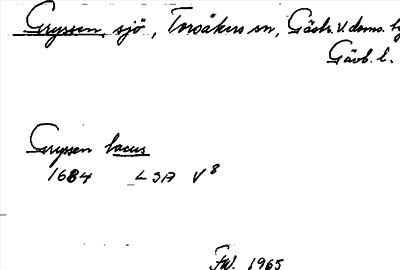 Gryssen, sjö, Torsåkers sn, Gästr. v. doms.
Gävb. l.
Gryssen lacus
1684 LSA V 8
FW. 1965